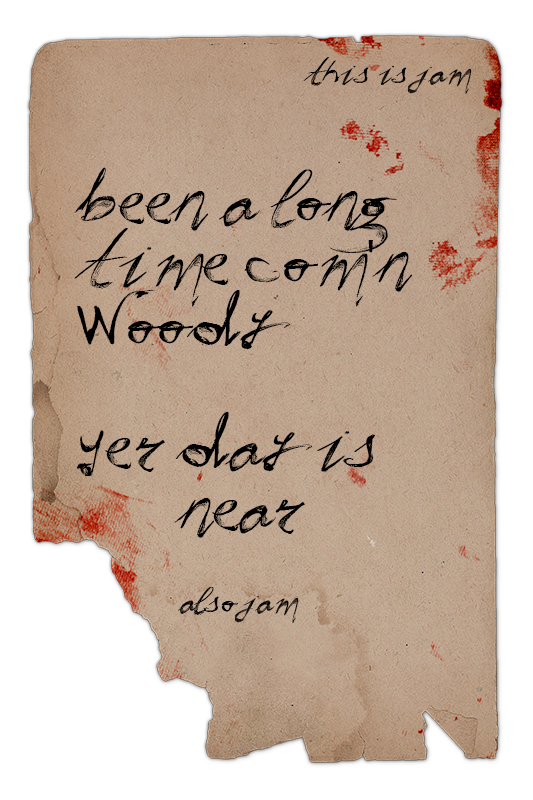 this is jam
been a long
time comin
Woody
yer day is
near
also jam